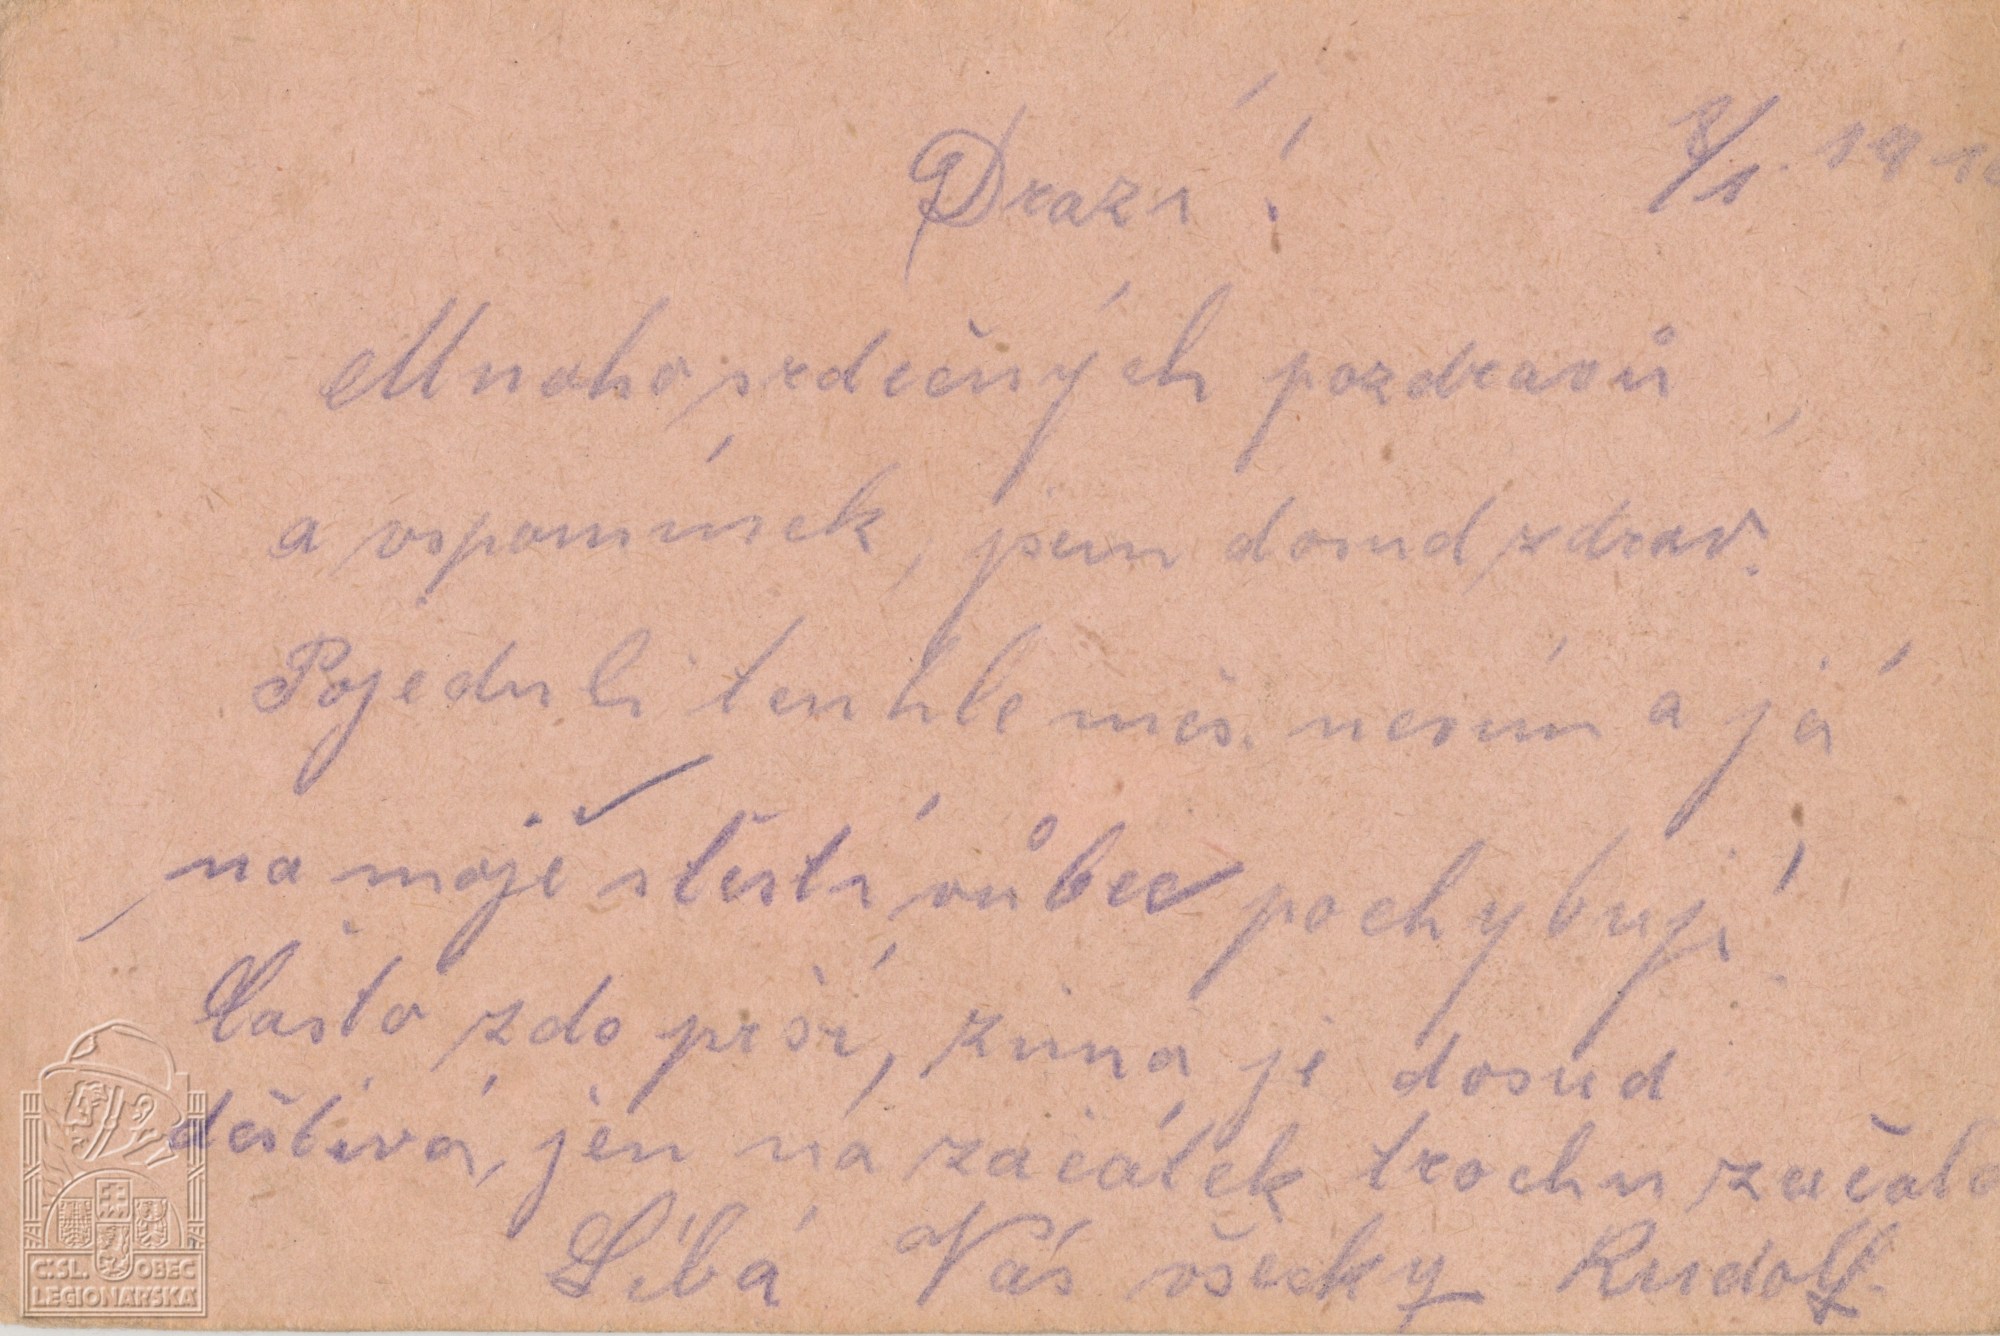 8/1. 191
Drazí!
Mnoho srdečných pozdravů
a vspomínek, jsem dosud zdráv.
Pojedu li tenhle měs. nevím a já
na moje štěstí vůbec pochybuji!
Často zde prší, zima je dosud
deštivá, jen na začátek trochu začalo
Líbá Vás všecky Rudolf.
ČSL. OBEC
LEGIONÁŘSKÁ